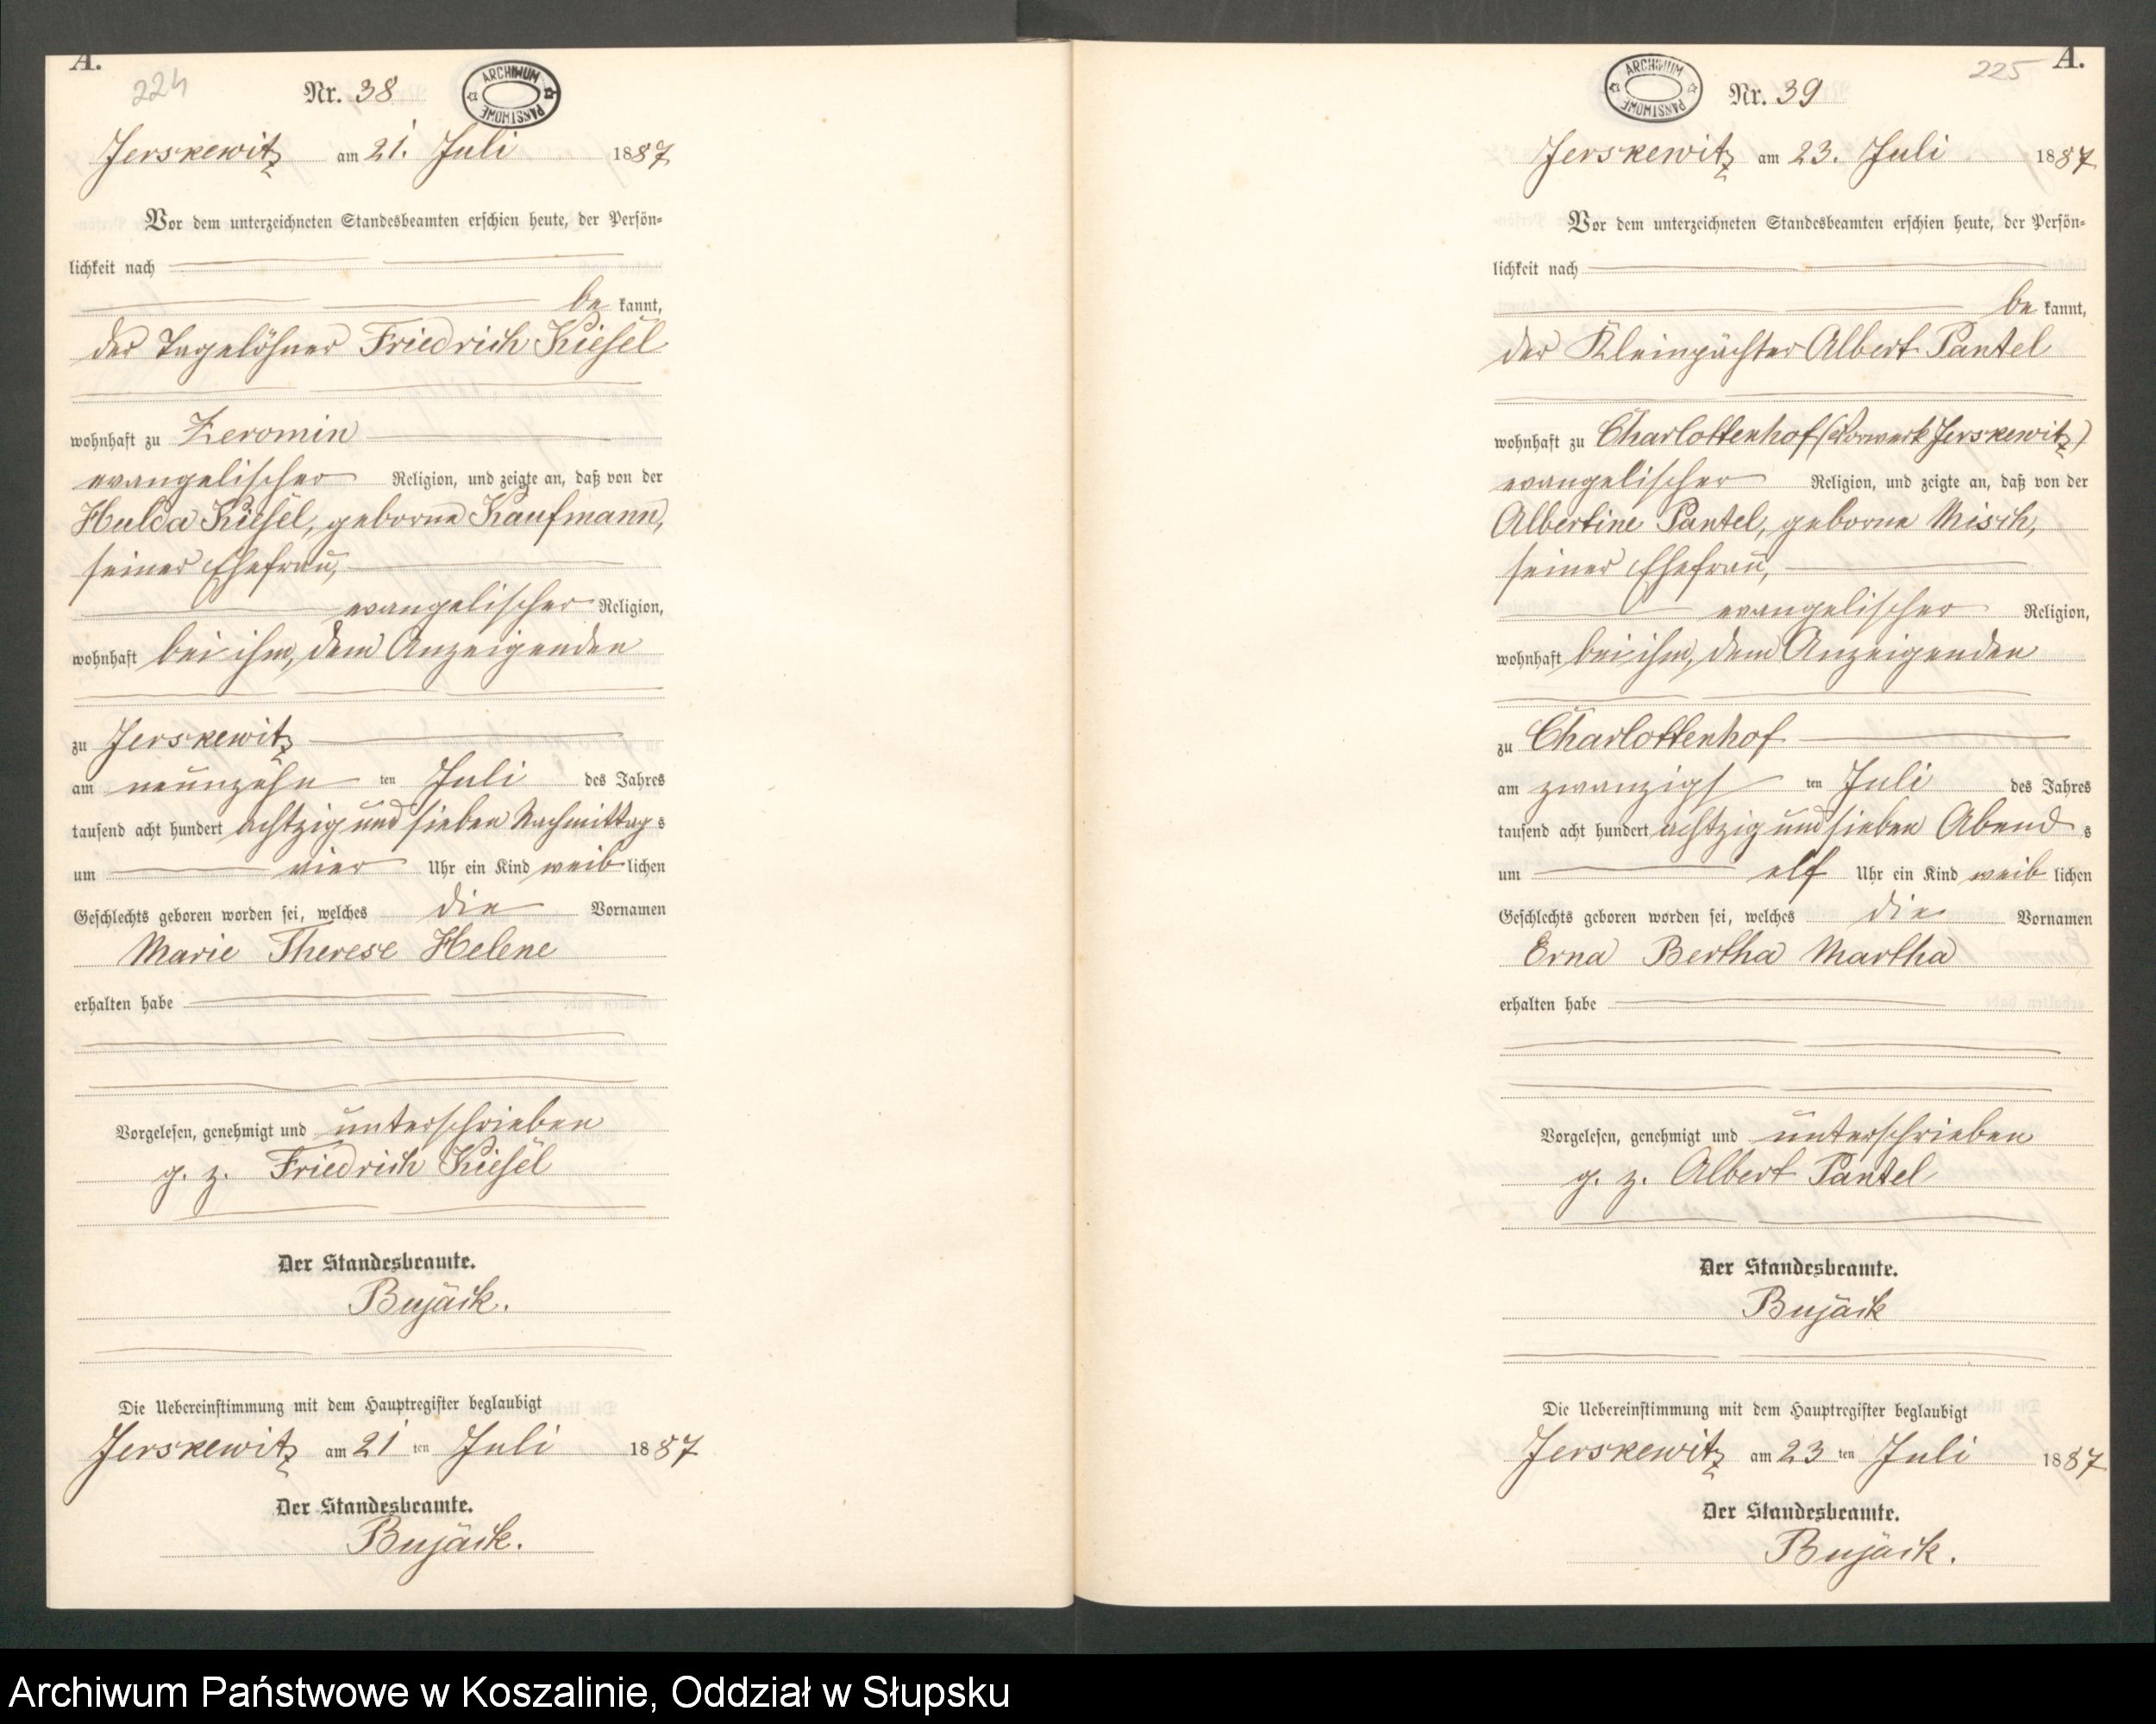 A.
224
Nr. 38
ARCHIWUM PAŃSTWOWE
Jerskewitz am 21. Juli 1887
Vor dem unterzeichneten Standesbeamten erschien heute, der Persön-
lichkeit nach
be kannt,
der Tagelöhner Friedrich Kiesel
wohnhaft zu Zeromin
evangelischer Religion, und zeigte an, daß von der
Hulda Kiesel, geborne Kaufmann,
seiner Ehefrau,
evangelischer Religion,
wohnhaft bei ihm, dem Anzeigenden
zu Jerskewitz
am neunzehn ten Juli des Jahres
tausend acht hundert achtzig und sieben Nachmittag s
um vier Uhr ein Kind weib lichen
Geschlechts geboren worden sei, welches die Vornamen
Marie Therese Helene
erhalten habe
Vorgelesen, genehmigt und unterschrieben
g. z. Friedrich Kiesel
Der Standesbeamte.
Bujäck.
Die Uebereinstimmung mit dem Hauptregister beglaubigt
Jerskewitz am 21 ten Juli 1887
Der Standesbeamte.
Bujäck.
A.
225
ARCHIWUM PAŃSTWOWE
Nr. 39
Jerskewitz am 23. Juli 1887
Vor dem unterzeichneten Standesbeamten erschien heute, der Persön-
lichkeit nach
be kannt,
der Kleinpächter Albert Pantel
wohnhaft zu Charlottenhof (Vorwerk Jerskewitz)
evangelischer Religion, und zeigte an, daß von der
Albertine Pantel, geborne Misch,
seiner Ehefrau,
evangelischer Religion,
wohnhaft bei ihm, dem Anzeigenden
zu Charlottenhof
am zwanzigs ten Juli des Jahres
tausend acht hundert achtzig und sieben Abend s
um elf Uhr ein Kind weib lichen
Geschlechts geboren worden sei, welches die Vornamen
Erna Bertha Martha
erhalten habe
Vorgelesen, genehmigt und unterschrieben
g. z. Albert Pantel
Der Standesbeamte.
Bujäck
Die Uebereinstimmung mit dem Hauptregister beglaubigt
Jerskewitz am 23 ten Juli 1887
Der Standesbeamte.
Bujäck.
Archiwum Państwowe w Koszalinie, Oddział w Słupsku